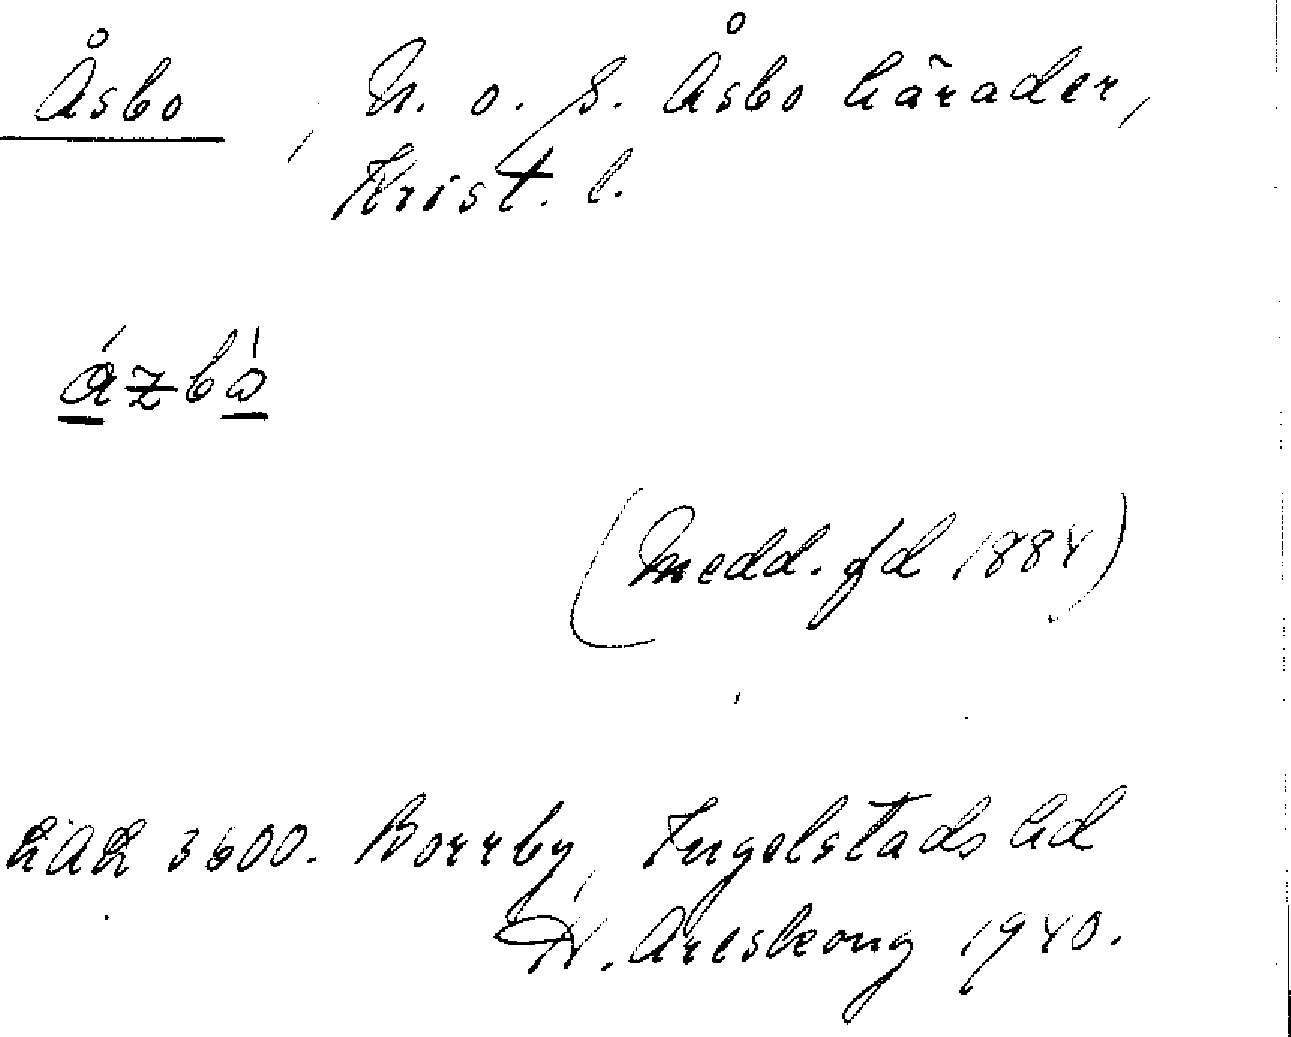 Åsbo, N. o. S. Åsbo härader,
Krist. l.
ázbò
(Medd. fd 1884)
LAL 3600. Borrby, Ingelstads hd
N. Areskoug 1940.